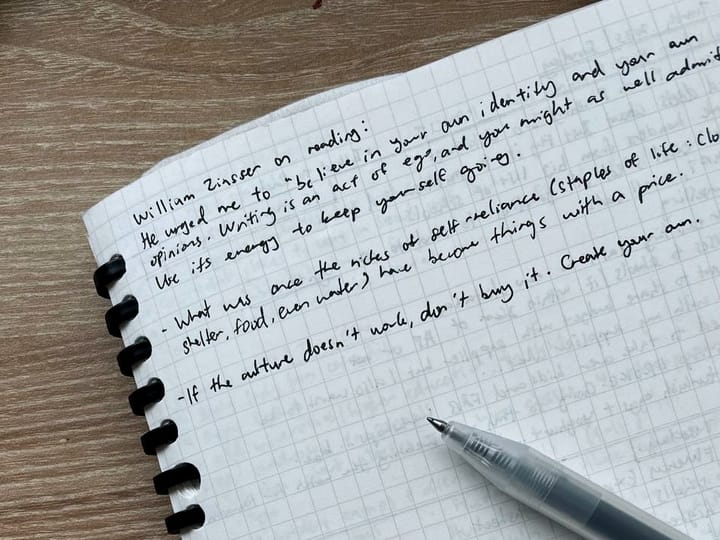 William Zinsser on reading:
He urged me to "believe in your own identity and your own
opinions. Writing is an act of ego, and you might as well admit
Use its energy to keep yourself going.
- What was once the riches of self-reliance (staples of life: Clo
shelter, food, even water) have become things with a price.
- If the culture doesn't work, don't buy it. Create your own.